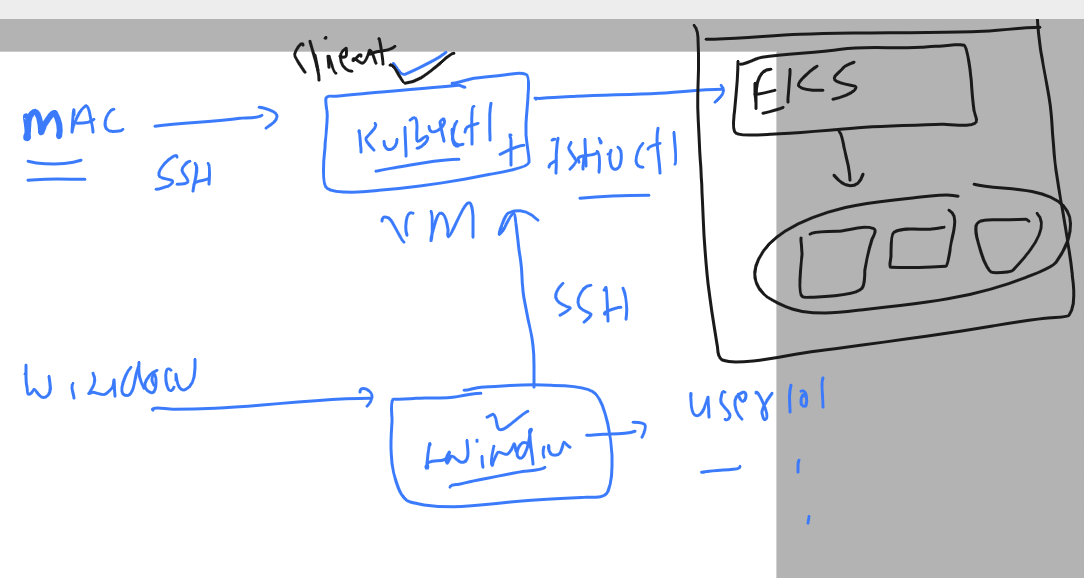 Client
MAC
SSH
Kubectl +
Istioctl
VM
EKS
SSH
Window
Window
user101